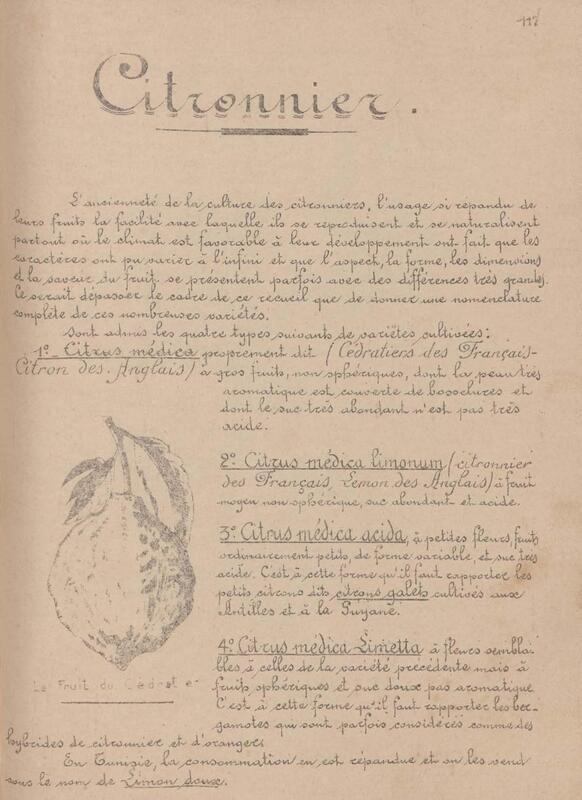 117
Citronnier.
L'ancienneté de la culture des citronniers, l'usage si répandu de
leurs fruits la facilité avec laquelle ils se reproduisent et se naturalisent
partout où le climat est favorable à leur développement ont fait que les
caractères ont pu varier à l'infini et que l'aspect, la forme, les dimensions
et la saveur du fruit se présentent parfois avec des différences très grandes.
Ce serait dépasser le cadre de ce recueil que de donner une nomenclature
complète de ces nombreuses variétés.
Sont admis les quatre types suivants de variétés cultivées:
1º Citrus médica proprement dit (Cédratiers des Français-
Citron des Anglais) à gros fruits, non sphériques, dont la peau très
aromatique est couverte de bosselures et
dont le suc très abondant n'est pas très
acide.
2º Citrus médica limonum (citronnier
des Français, Lemon des Anglais) à fruit
moyen non sphérique, suc abondant et acide.
3º Citrus médica acida, à petites fleurs, fruits
ordinairement petits, de forme variable, et suc très
acide. C'est à cette forme qu'il faut rapporter les
petits citrons dits citrons galets cultivés aux
Antilles et à la Guyane.
4º Citrus médica Limetta à fleurs sembla-
bles à celles de la variété précédente mais à
fruits sphériques et suc doux pas aromatique.
C'est à cette forme qu'il faut rapporter les ber-
gamotes qui sont parfois considérés comme des
hybrides de citronnier et d'oranger.
En Tunisie, la consommation en est répandue et on les vend
sous le nom de Limon doux.
Le Fruit du Cédratier